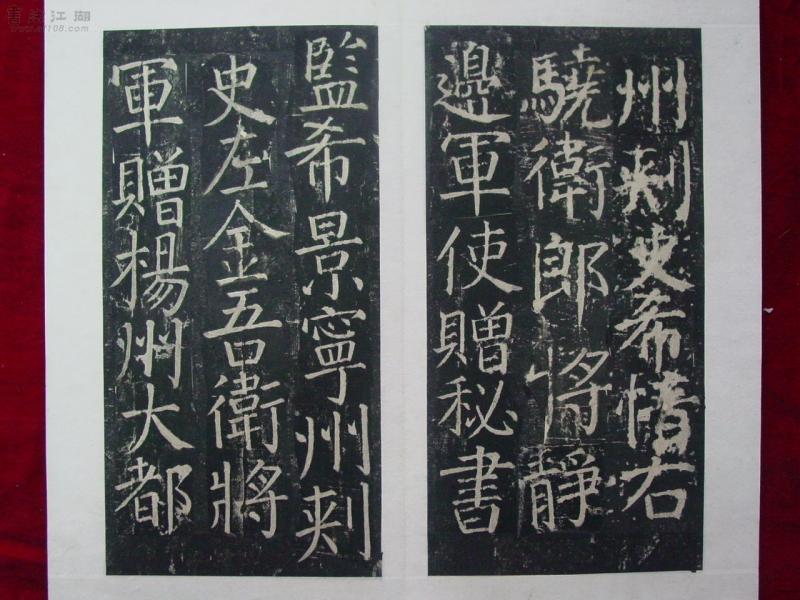 州刺史希情右
驍衛郎將静
邊軍使贈秘書
監希景寧州刺
史左金吾衛將
軍贈楊州大都
書法江湖
www.sf108.com